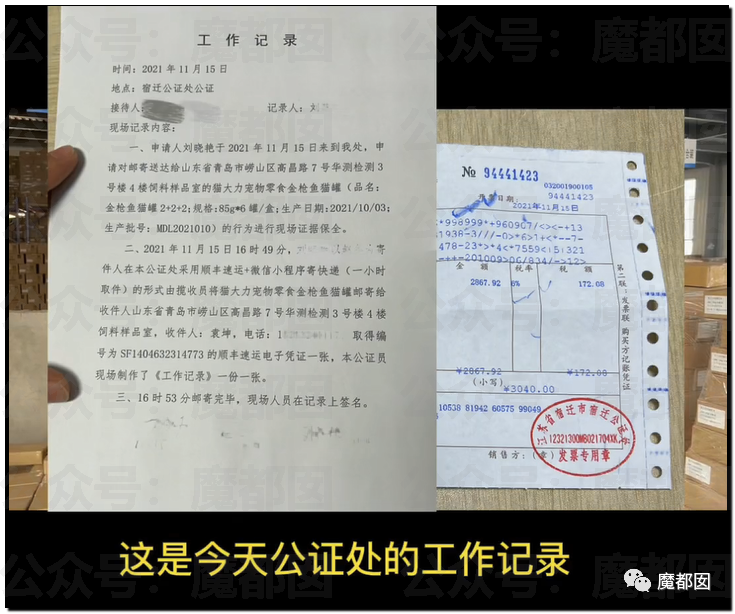 工作记录
时间：2021年11月15日
地点：宿迁公证处公证
接待人： 记录人：刘
现场记录内容：
一、申请人刘晓艳于2021年11月15日来到我处，申
请对邮寄送达给山东省青岛市崂山区高昌路7号华测检测3
号楼4楼饲料样品室的猫大力宠物零食金枪鱼猫罐（品名：
金枪鱼猫罐2+2+2；规格：85g*6罐/盒；生产日期：2021/10/03；
生产批号：MDL2021010）的行为进行现场证据保全。
二、2021年11月15日16时49分，
寄件人在本公证处采用顺丰速运+微信小程序寄快递（一小时
取件）的形式由揽收员将猫大力宠物零食金枪鱼猫罐邮寄给
收件人山东省青岛市崂山区高昌路7号华测检测3号楼4楼
饲料样品室，收件人：袁坤，电话：1 取得编
号为SF1404632314773的顺丰速运电子凭证一张，本公证员
现场制作了《工作记录》一份一张。
三、16时53分邮寄完毕，现场人员在记录上签名。
№ 94441423
032001900105
94441423
日期：2021年11月15日
金额 税率 税额
2867.92 6% 172.08
¥2867.92 ¥172.08
（小写） ¥3040.00
10538 81942 60575 99049
第二联：发票联 购买方记账凭证
江苏省宿迁市宿迁公证处
12321300MB021704XK
发票专用章
销售方：（章）
这是今天公证处的工作记录
公众号：魔都囡
魔都囡